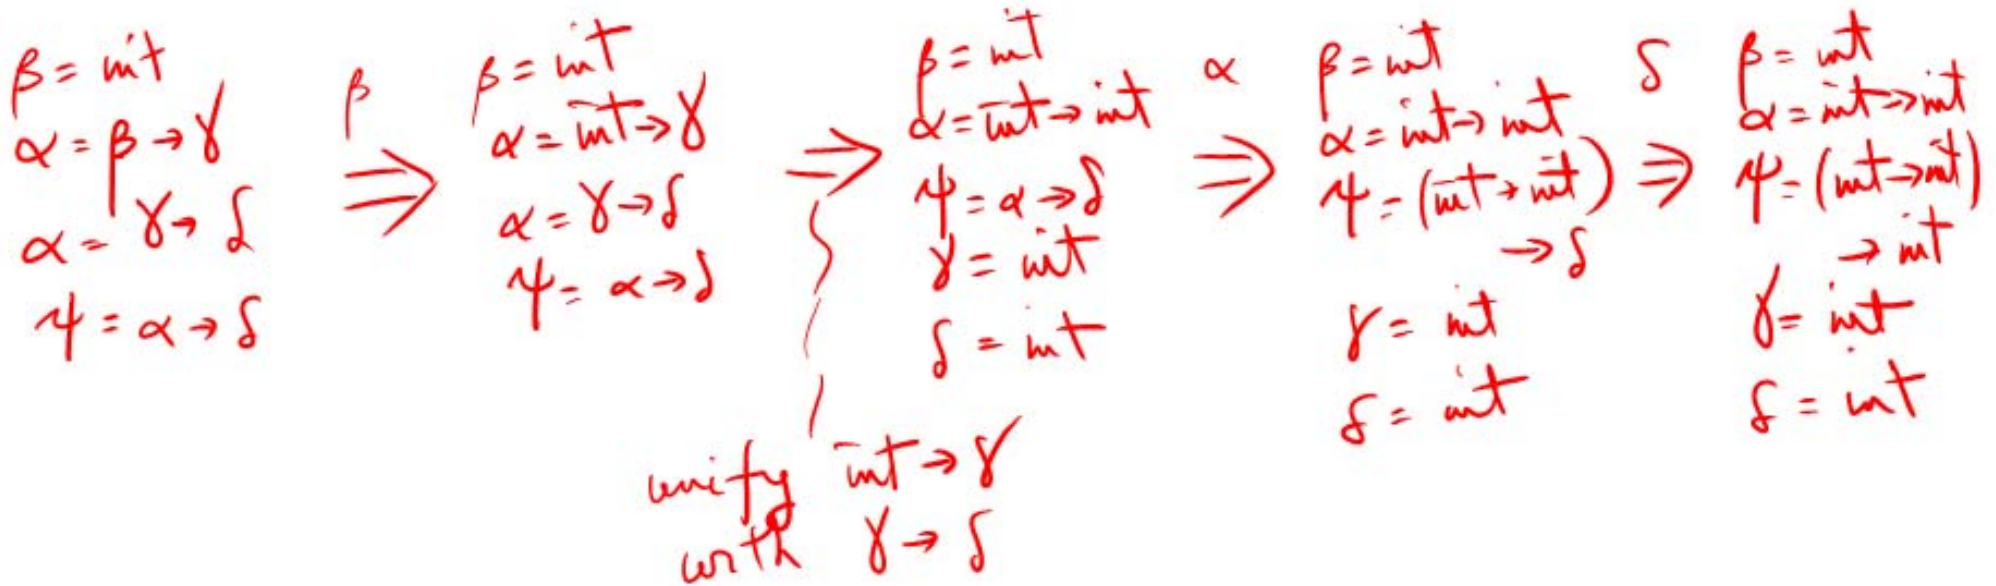 β = int
α = β → γ
α = γ → δ
ψ = α → δ
β
⇒
β = int
α = int → γ
α = γ → δ
ψ = α → δ
⇒
unify int → γ
with γ → δ
β = int
α = int → int
ψ = α → δ
γ = int
δ = int
α
⇒
β = int
α = int → int
ψ = (int → int)
→ δ
γ = int
δ = int
δ
⇒
β = int
α = int → int
ψ = (int → int)
→ int
γ = int
δ = int